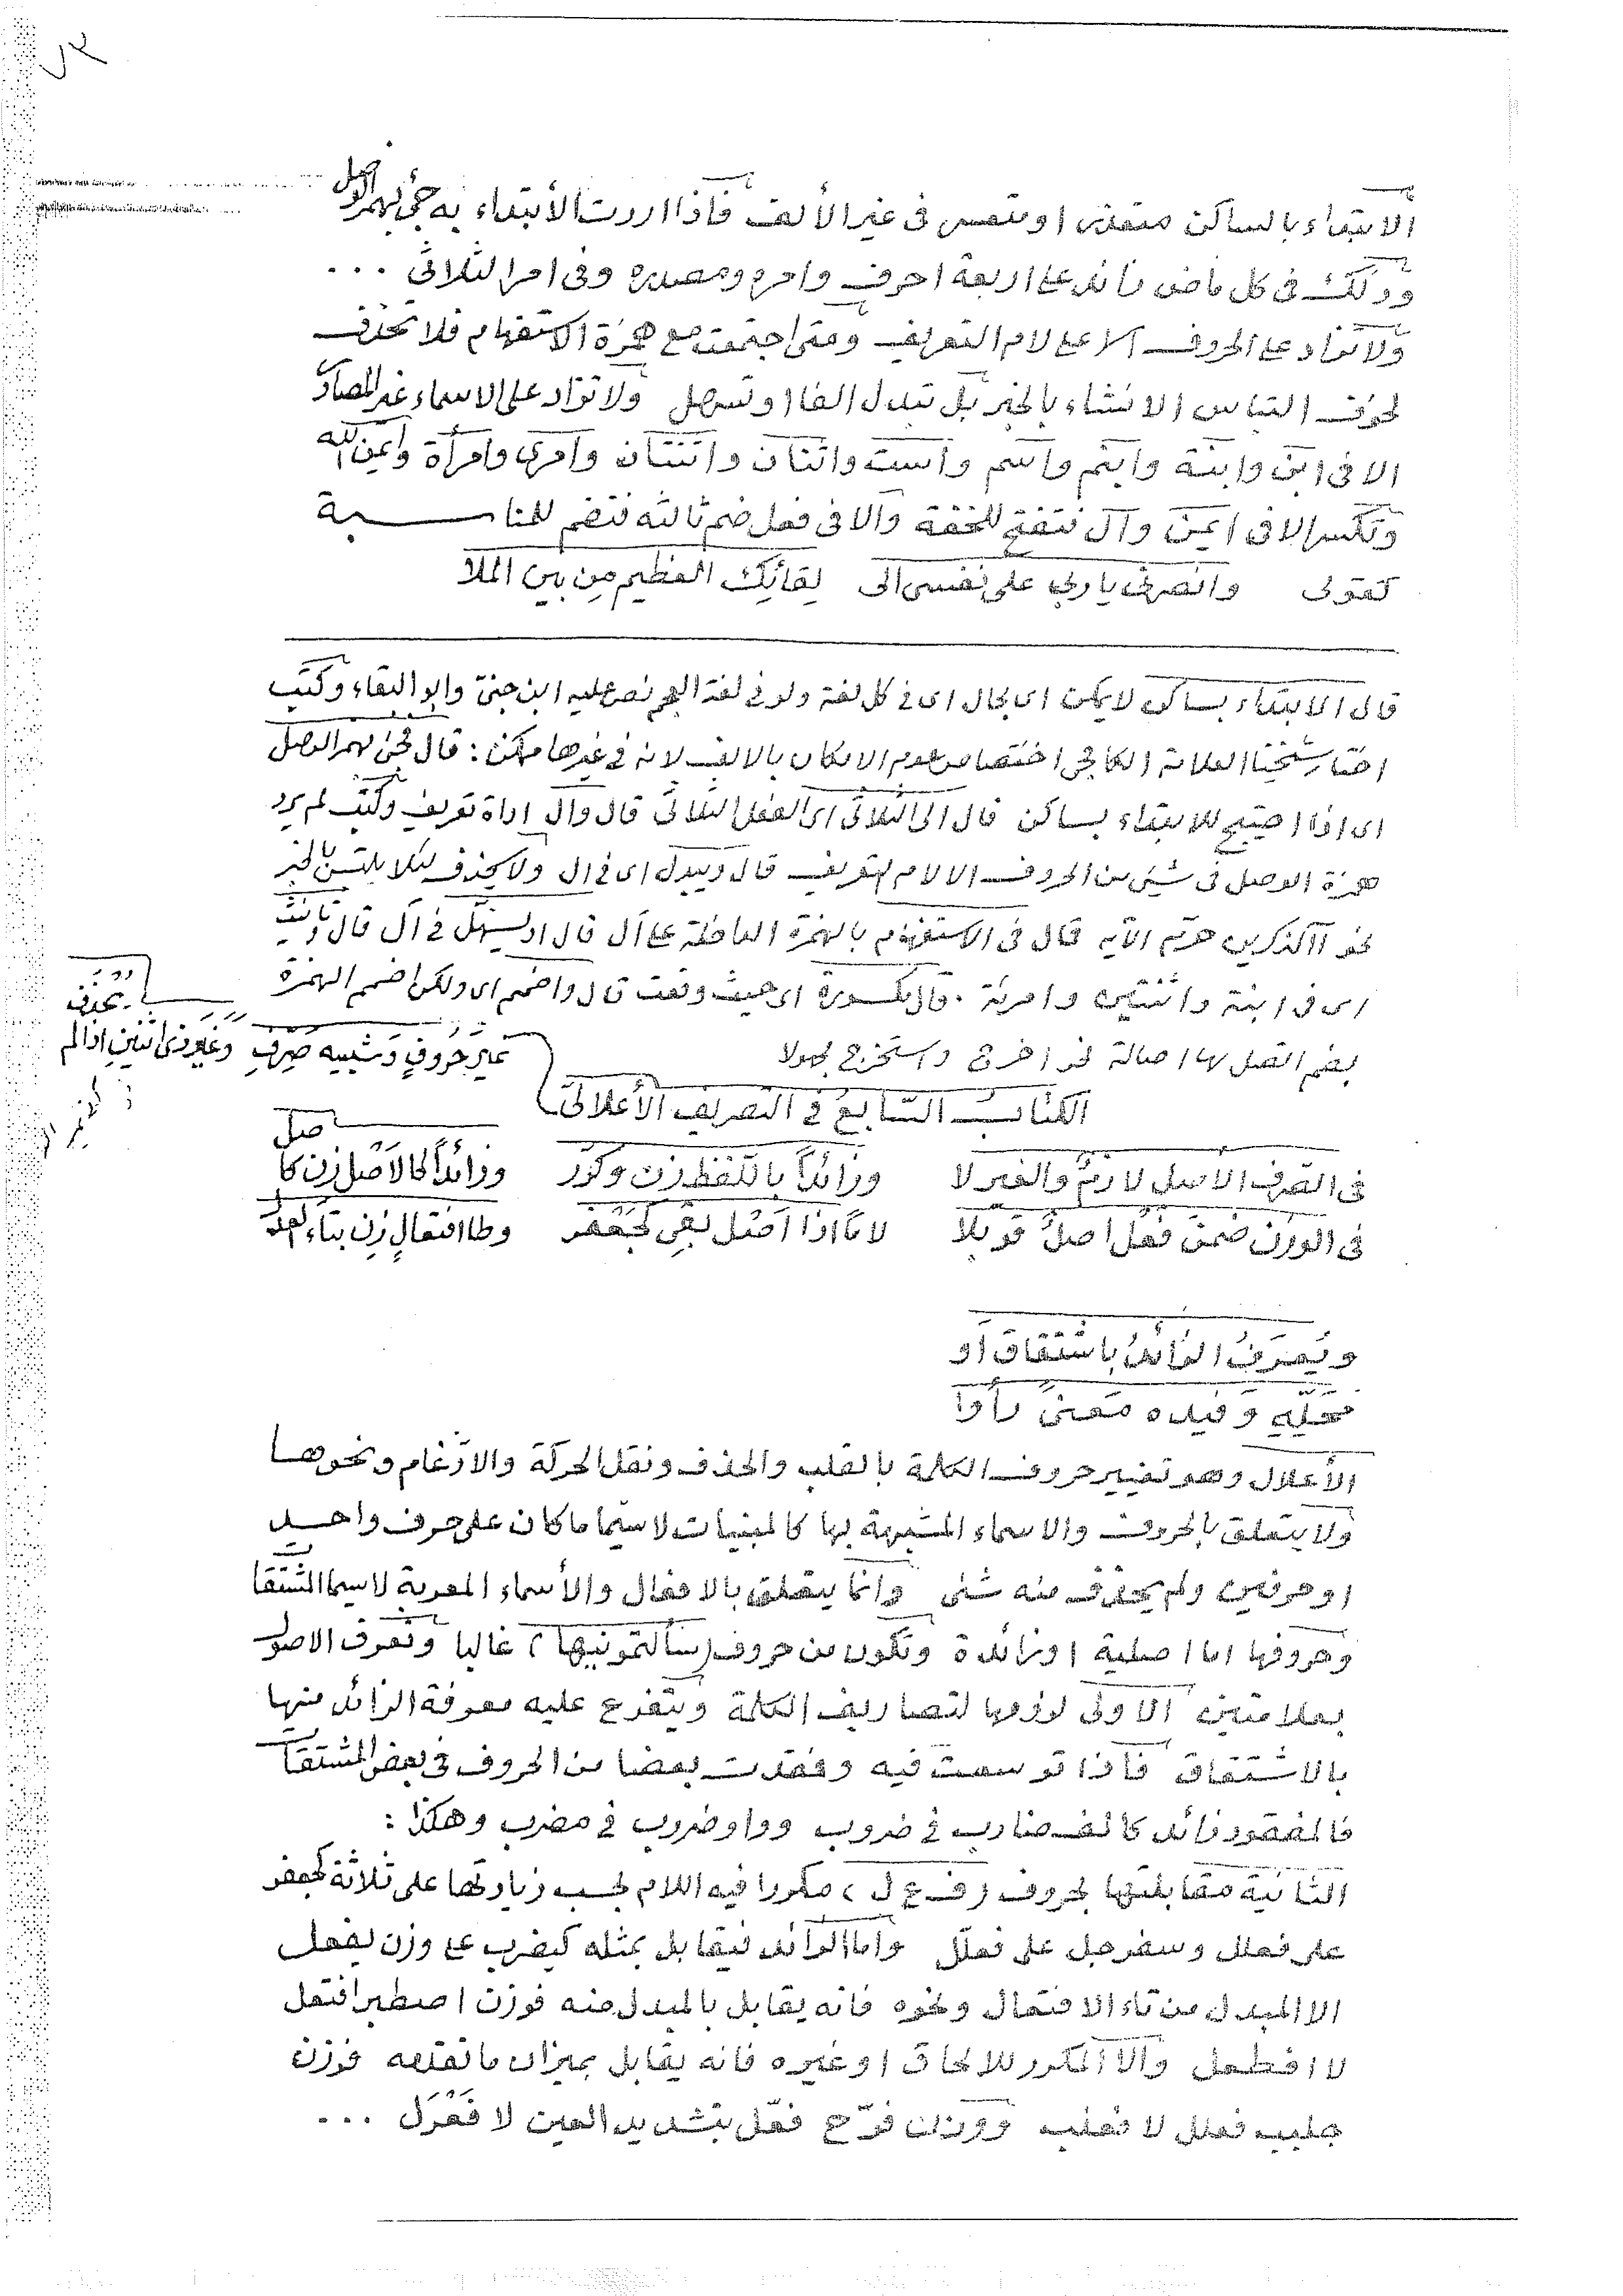 ٧٣
الابتداء بالساكن متعذر او متعسر فى غير الألف فاذا اردت الأبتداء به جئ بهمز الوصل
وذلك فى كل ماض زائد على اربعة احرف وامره ومصدره وفى امر الثلاثى ...
ولا تزاد على الحروف الا على لام التعريف ومتى اجتمعت مع همزة الاستفهام فلا تحذف
لخوف التباس الانشاء بالخبر بل تبدل الفا او تسهل ولا تزاد على الاسماء غير المصادر
الا فى ابن وابنة وابنم واسم واست واثنان واثنتان وامرئ وامرأة وايمن الله
وتكسر الا فى ايمن وال فتفتح للخفة والا فى فعل ضم ثالثه فتضم للمناسبة
كقولى وانصرنى يا ربى على نفسى الى لقائك العظيم من بين الملا
قال الابتداء بساكن لا يمكن اى بحال اى فى كل لغة ولو فى لغة العجم نص عليه ابن جنى وابو البقاء وكتب
اختار شيخنا العلامة الكافجى اختصاص عدم الامكان بالالف لانه فى غيرها ممكن : قال فجئ بهمز الوصل
اى اذا احتيج للابتداء بساكن قال الى الثلاثى اى الفعل الثلاثى قال وال اداة تعريف وكتب لم يرد
همزة الوصل فى شيئ من الحروف الا لام التعريف قال ويبدل اى فى ال ولا يحذف لئلا يلتبس بالخبر
نحو آلذكرين حرم الآية قال فى الاستفهام بالهمزة الداخلة على أل قال او يسهل فى أل قال وتأنيث
اى فى ابنة واثنتين وامرئة . قال بكسورة اى حيث وقعت قال واضمم اى ولكن اضمم الهمزة
بضم اتصل بها اصالة نحو اخرج واستخرج مجهولا
الكتاب السابع فى التصريف الأعلالى
غير حروف وشبيه صرف وغير ذى اثنين اذا لم يحذف
فى الصرف الاصل لازم والغير لا وزائدا باللفظ زن وكرر وزائدا كالاصل زن كاصل
فى الوزن ضمن فعل اصل قوبلا لاما اذا اصل بقى لجعفر وطا افتعال زن بتاء
ويعرف الزائد باشتقاق او
محله وفيده معنى رأوا
الأعلال وهو تغيير حروف الكلمة بالقلب والحذف ونقل الحركة والادغام ونحوها
ولا يتعلق بالحروف والاسماء المشبهة بها كالمبنيات لا سيما ما كان على حرف واحد
او حرفين ولم يحذف منه شئ وانما يتعلق بالافعال والأسماء المعربة لا سيما المشتقات
وحروفها اما اصلية او زائدة وتكون من حروف (سألتمونيها) غالبا وتعرف الاصول
بعلامتين الاولى لزومها لتصاريف الكلمة ويتفرع عليه معرفة الزائد منها
بالاشتقاق فاذا توسعت فيه وفقدت بعضا من الحروف فى بعض المشتقات
فالمفقود زائد كالف ضارب فى ضروب وواو ضروب فى مضرب وهكذا :
الثانية مقابلتها لحروف (ف ع ل) مكررا فيه اللام بحسب زيادتها على ثلاثة كجعفر
على فعلل وسفرجل على فعلل واما الزائد فيقابل بمثله كيضرب على وزن يفعل
الا المبدل من تاء الافتعال ونحوه فانه يقابل بالمبدل منه فوزن اصطبر افتعل
لا افطعل والا المكرر للالحاق او غيره فانه يقابل بميزان ما تقدمه فوزن
جلبب فعلل لا فعلب ووزن فرّح فعّل بتشديد العين لا فَعْرَل ...